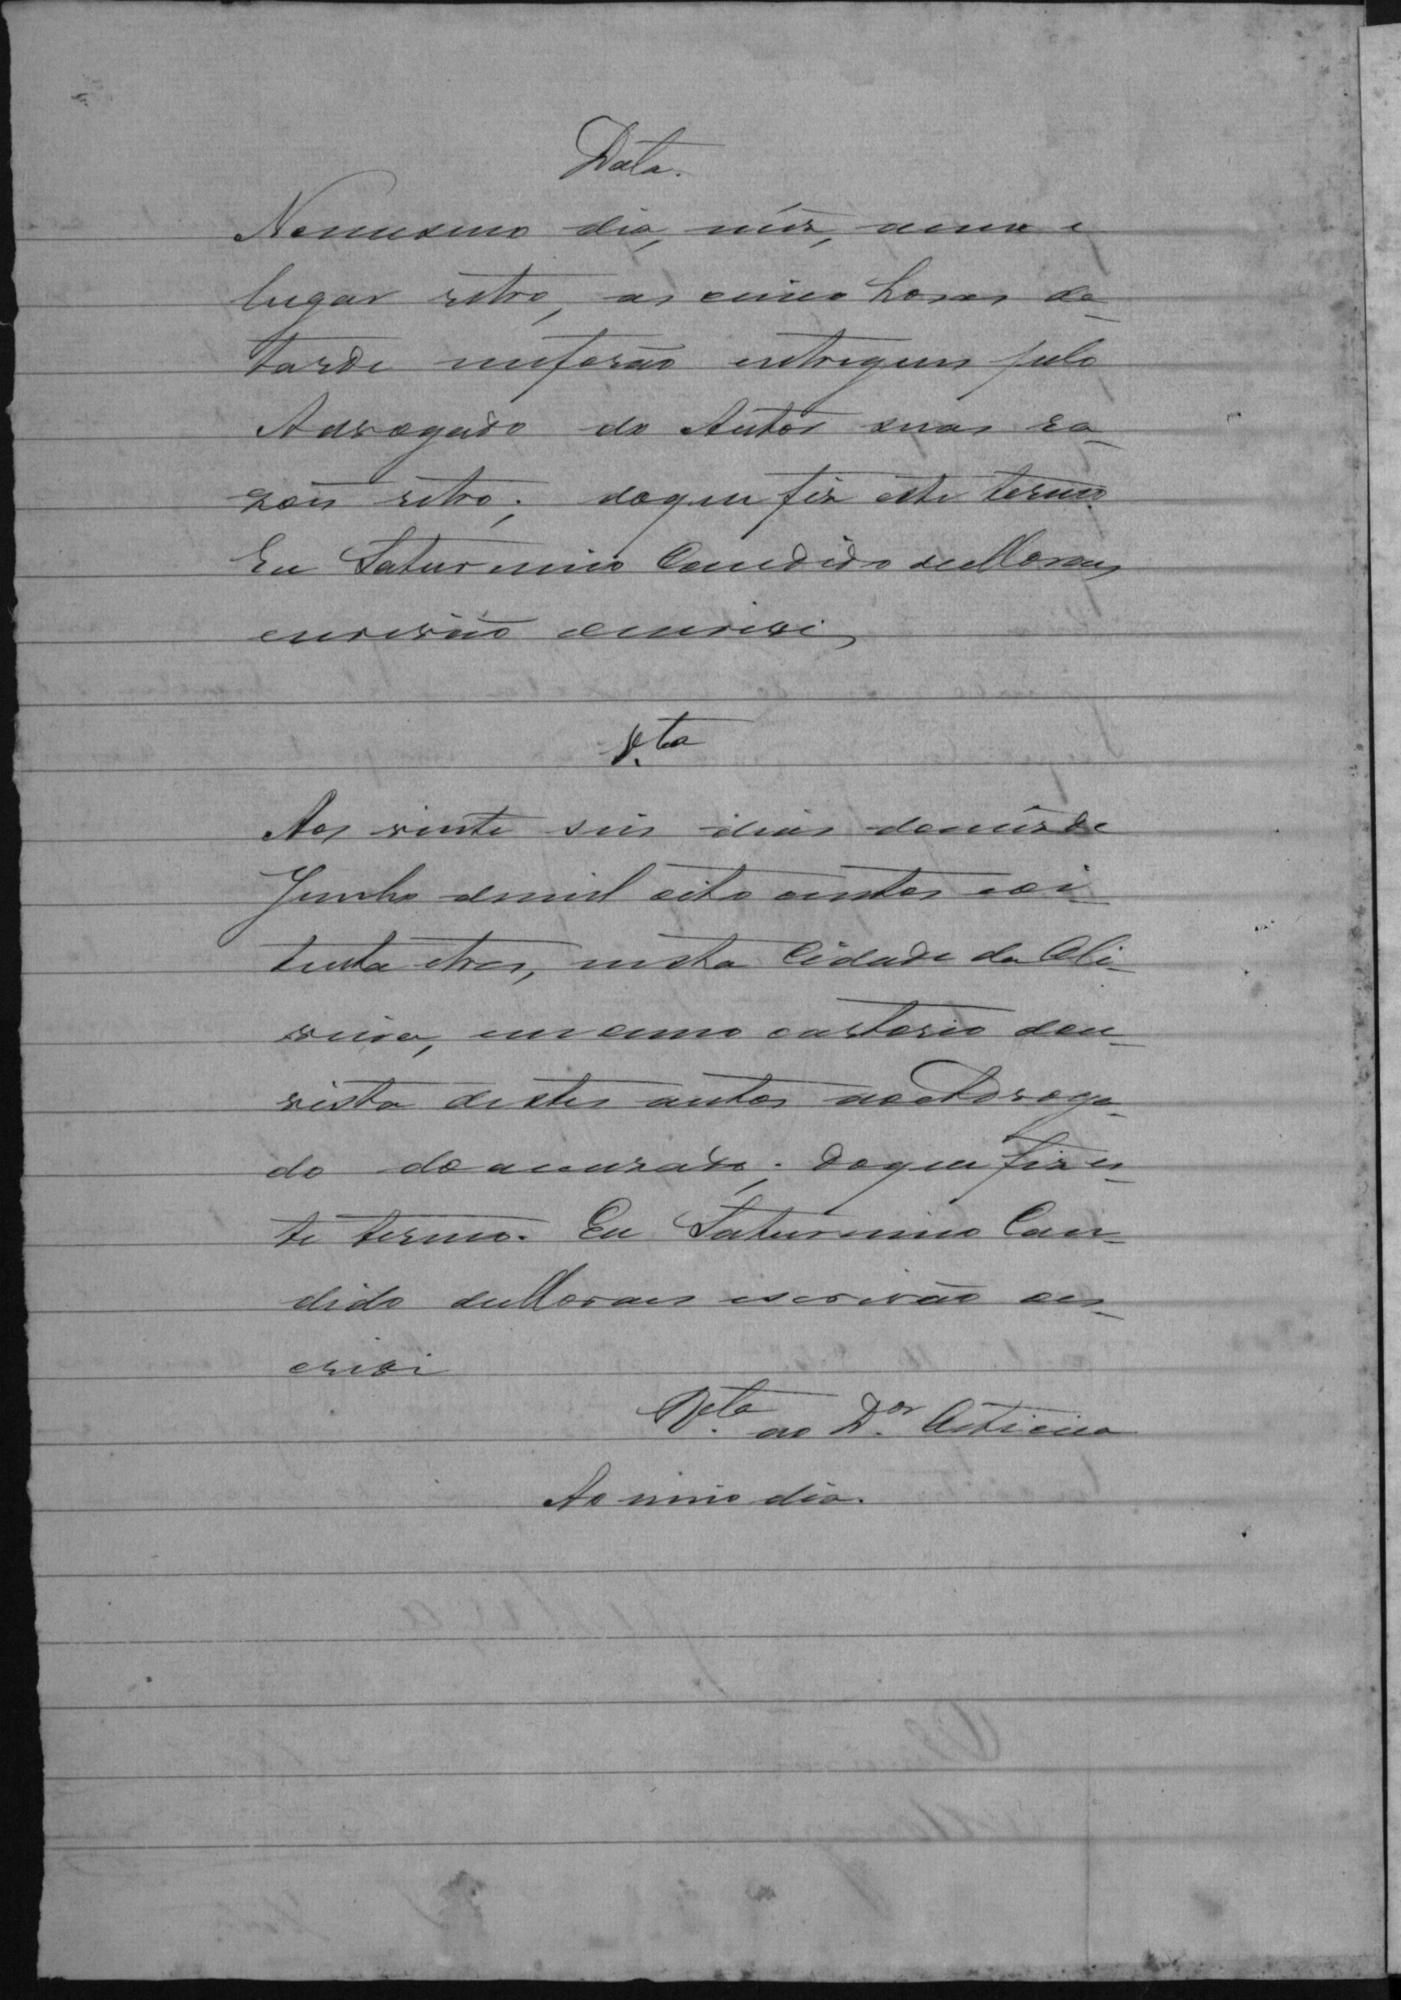 Data.
No mesmo dia, mêz, anno e
lugar retro, as cinco horas da
tarde me forão entregues pelo
Advogado do Autor suas ra-
zões retro; do que fiz este termo.
Eu Saturnino Candido de Moraes
escrivão o escrivi,
V.ta
Aos vinte seis dias do mêz de
Junho de mil oito centos e oi-
tenta e tres, nesta Cidade da
em o meu cartorio dou
vista destes autos ao Advoga-
do do accusado; do que fiz es-
te termo. Eu Saturnino Can-
dido de Moraes escrivão o es-
crivi
V.ta ao D.or
Ao meio dia.